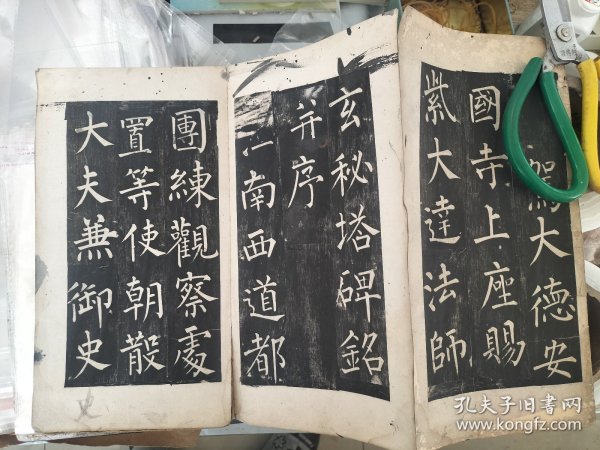 駕大德安
國寺上座賜
紫大達法師
玄秘塔碑銘
并序
江南西道都
團練觀察處
置等使朝散
大夫兼御史
史
孔夫子旧书网
www.kongfz.com